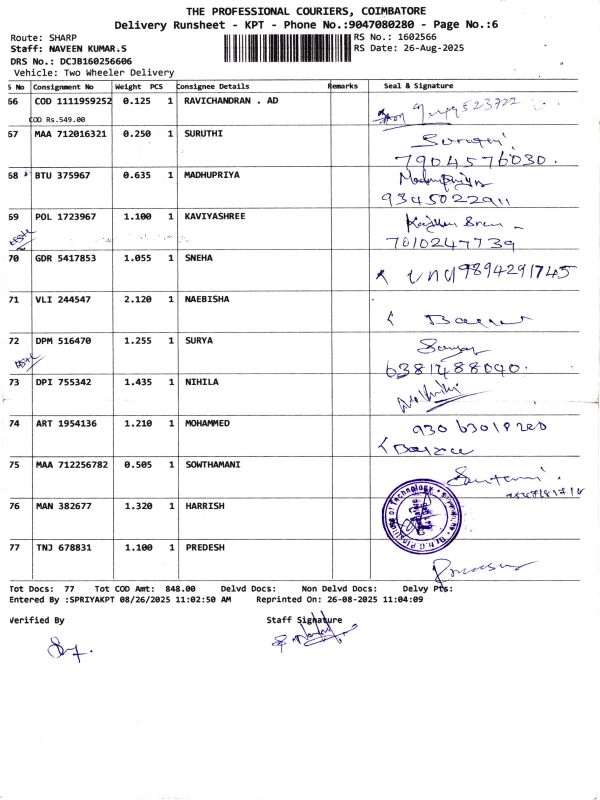 THE PROFESSIONAL COURIERS, COIMBATORE
Delivery Runsheet - KPT - Phone No.:9047080280 - Page No.:6
Route: SHARP
RS No.: 1602566
Staff: NAVEEN KUMAR.S
RS Date: 26-Aug-2025
DRS No.: DCJB160256606
Vehicle: Two Wheeler Delivery
S No Consignment No Weight PCS Consignee Details Remarks Seal & Signature
66 COD 1111959252 0.125 1 RAVICHANDRAN . AD
COD Rs.549.00
67 MAA 712016321 0.250 1 SURUTHI
7904576030.
68 BTU 375967 0.635 1 MADHUPRIYA
9345022911
69 POL 1723967 1.100 1 KAVIYASHREE
7010247739
70 GDR 5417853 1.055 1 SNEHA 9894291745
71 VLI 244547 2.120 1 NAEBISHA
72 DPM 516470 1.255 1 SURYA
6381488040.
73 DPI 755342 1.435 1 NIHILA
74 ART 1954136 1.210 1 MOHAMMED
75 MAA 712256782 0.505 1 SOWTHAMANI
76 MAN 382677 1.320 1 HARRISH
77 TNJ 678831 1.100 1 PREDESH
Tot Docs: 77 Tot COD Amt: 848.00 Delvd Docs: Non Delvd Docs: Delvy Pts:
Entered By :SPRIYAKPT 08/26/2025 11:02:50 AM Reprinted On: 26-08-2025 11:04:09
Verified By Staff Signature